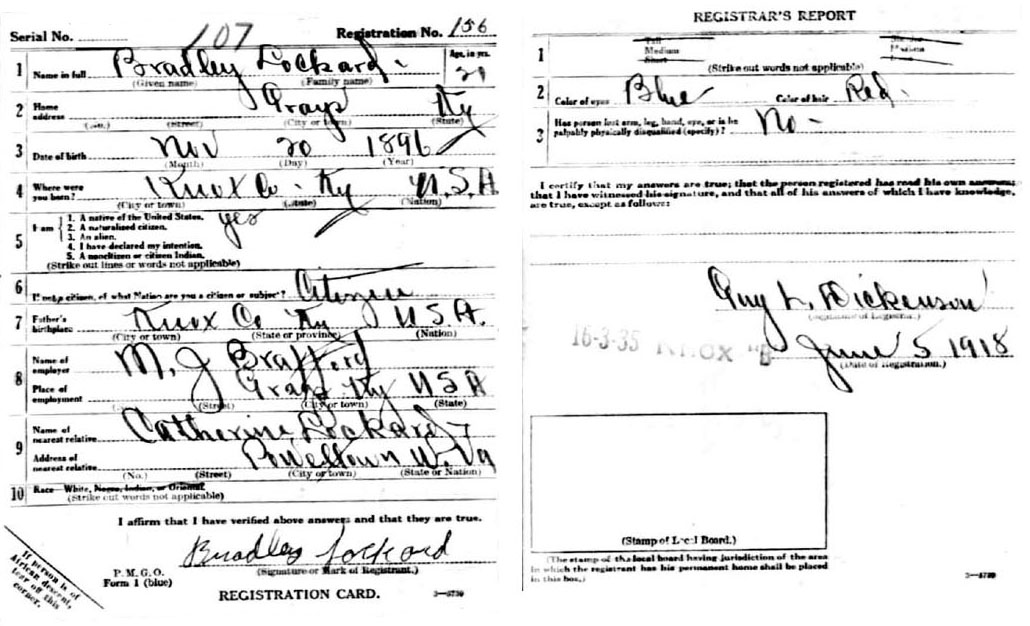 Serial No. 107 Registration No. 156
1 Name in full Bradley Lockard Age, in yrs.
(Given name) (Family name) 21
2 Home address Grays Ky
(No.) (Street) (City or town) (State)
3 Date of birth Nov 20 1896
(Month) (Day) (Year)
4 Where were you born? Knox Co - Ky U.S.A
(City or town) (State) (Nation)
5 I am
1. A native of the United States. yes
2. A naturalized citizen.
3. An alien.
4. I have declared my intention.
5. A noncitizen or citizen Indian.
(Strike out lines or words not applicable)
6 If not a citizen, of what Nation are you a citizen or subject? Citizen
7 Father's birthplace Knox Co Ky U.S.A.
(City or town) (State or province) (Nation)
8 Name of employer M. J Brafford
Place of employment Grays Ky U S A
(Street) (City or town) (State)
9 Name of nearest relative Catherine Lockard
Address of nearest relative Poweltown W. Va
(No.) (Street) (City or town) (State or Nation)
10 Race—White, Negro, Indian, or Oriental
(Strike out words not applicable)
I affirm that I have verified above answers and that they are true.
Bradley Lockard
P. M. G. O. (Signature or Mark of Registrant.)
Form 1 (blue)
REGISTRATION CARD. 3—5739
If person is of
African descent,
tear off this
corner.
REGISTRAR'S REPORT
1 Tall
Medium
Short
Slender
Medium
Stout
(Strike out words not applicable)
2 Color of eyes Blue Color of hair Red.
3 Has person lost arm, leg, hand, eye, or is he
palpably physically disqualified (specify)? No -
I certify that my answers are true; that the person registered has read his own answers;
that I have witnessed his signature, and that all of his answers of which I have knowledge,
are true, except as follows:
Guy L. Dickenson
(Signature of Registrar.)
16-3-35 KNOX "B"
June 5, 1918
(Date of Registration.)
(Stamp of Local Board.)
(The stamp of the local board having jurisdiction of the area
in which the registrant has his permanent home shall be placed
in this box.) 3—5739